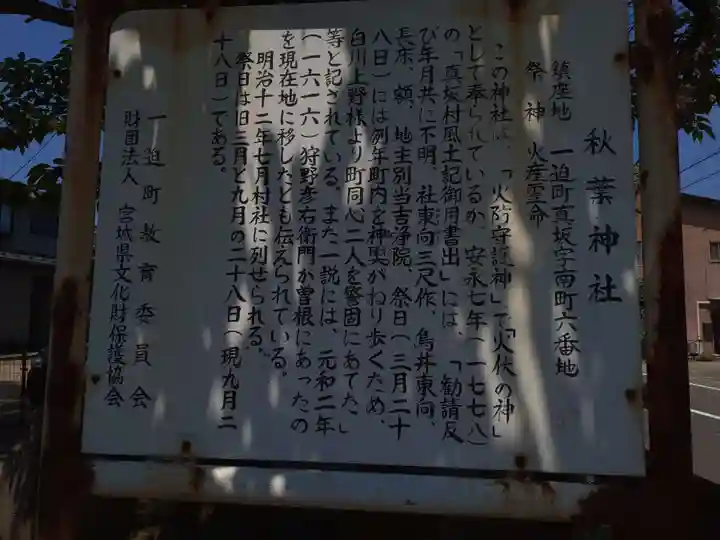 秋葉神社
鎮座地 一迫町真坂字南町六番地
祭神 火産霊命
この神社は、「火防守護神」で「火伏の神」
として奉られているが、安永七年(一七七八)
の「真坂村風土記御用書出」には、「勧請及
び年月共に不明、社東向三尺作、鳥井東向、
長床、額、地主別当吉浄院、祭日(三月二十
八日)には例年町内を神輿がねり歩くため、
白川上野様より町同心二人を警固にあてた。」
等と記されている。また一説には、元和二年
(一六一六)狩野彦右衛門が曽根にあったの
を現在地に移したとも伝えられている。
明治十二年七月村社に列せられる。
祭日は旧三月と九月の二十八日(現九月二
十八日)である。
一迫町教育委員会
財団法人 宮城県文化財保護協会